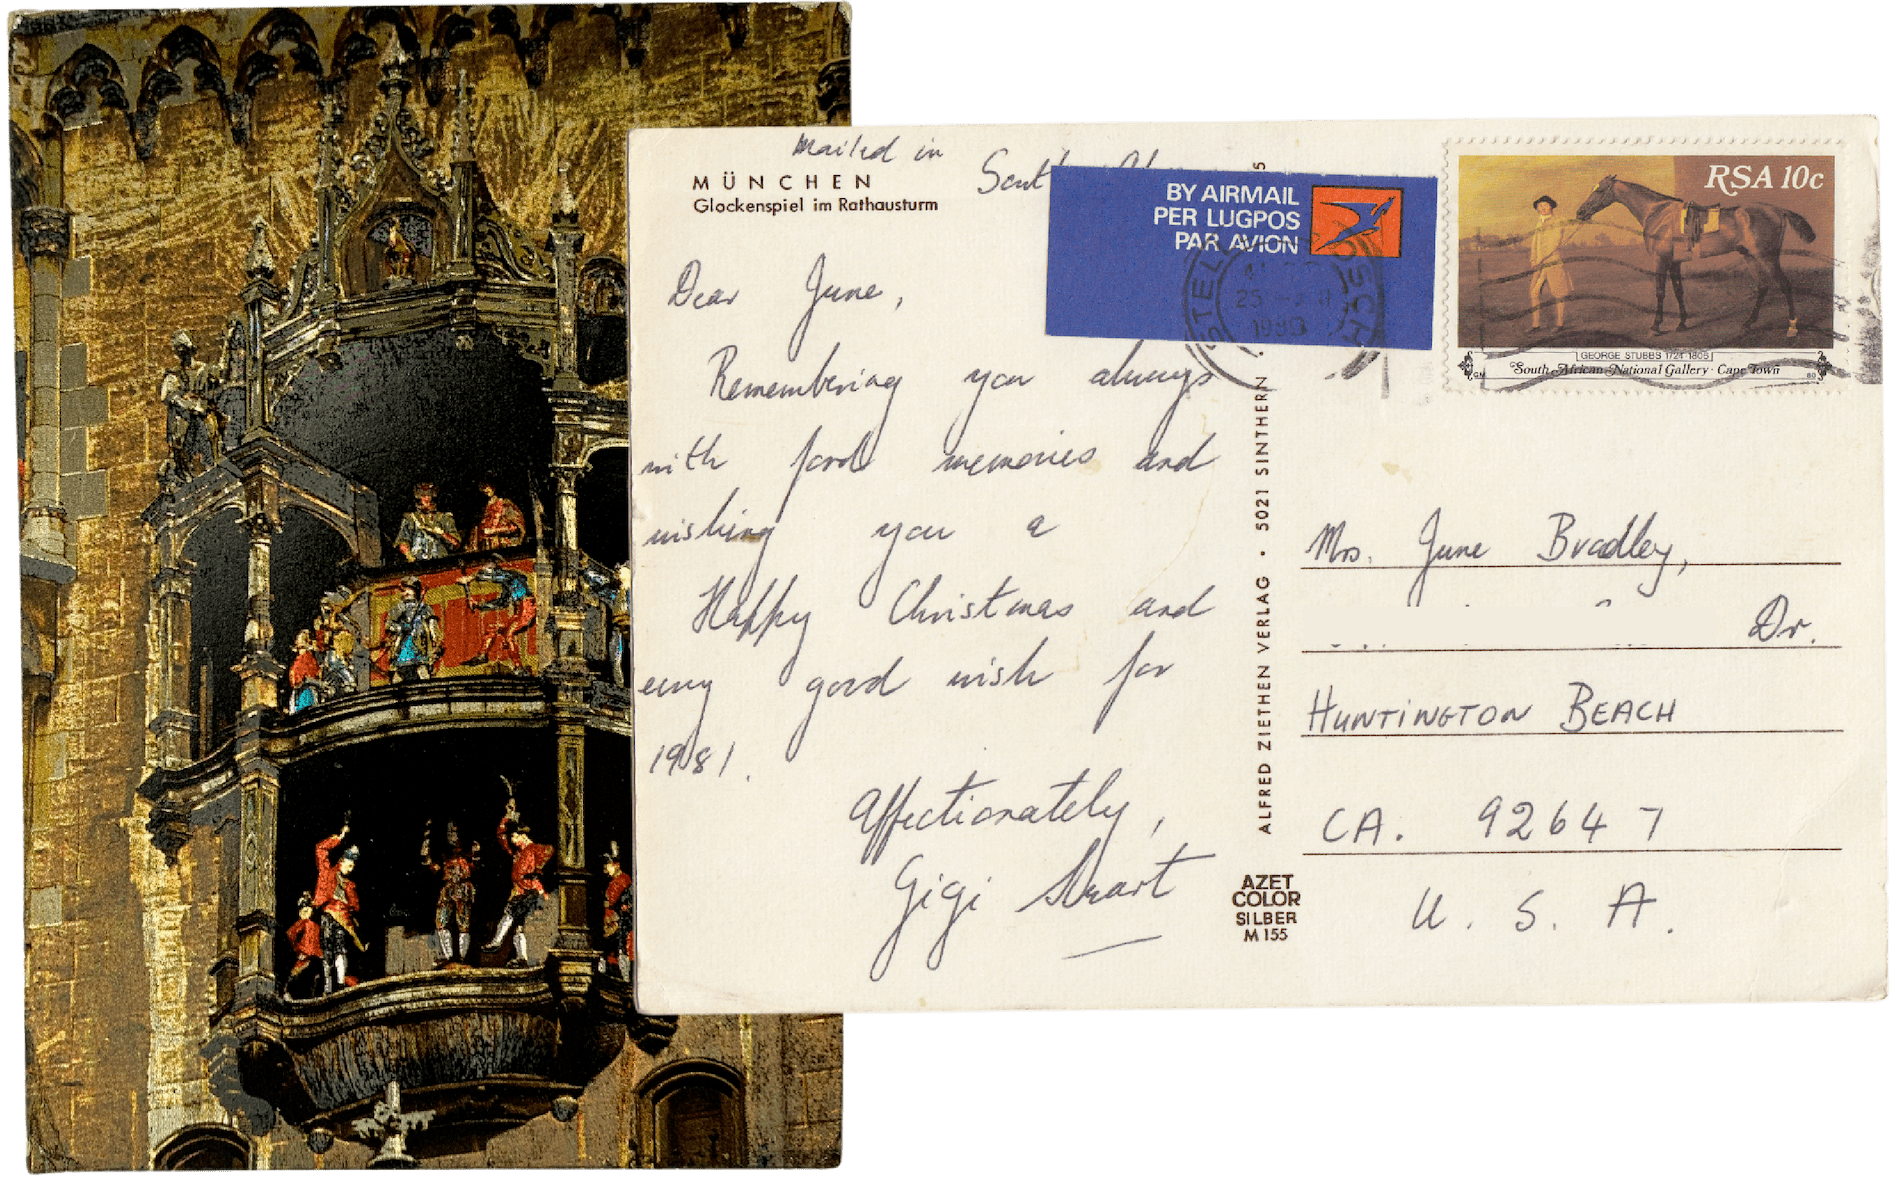 mailed in
South
MÜNCHEN
Glockenspiel im Rathausturm
BY AIRMAIL
PER LUGPOS
PAR AVION
RSA 10c
GEORGE STUBBS 1724-1806
South African National Gallery · Cape Town
Dear June,
Remembering you always
with fond memories and
wishing you a
Happy Christmas and
every good wish for
1981.
Affectionately,
Gigi Stuart
ALFRED ZIETHEN VERLAG · 5021 SINTHERN
AZET
COLOR
SILBER
M 155
Mrs. June Bradley,
Dr.
HUNTINGTON BEACH
CA. 92647
U. S. A.